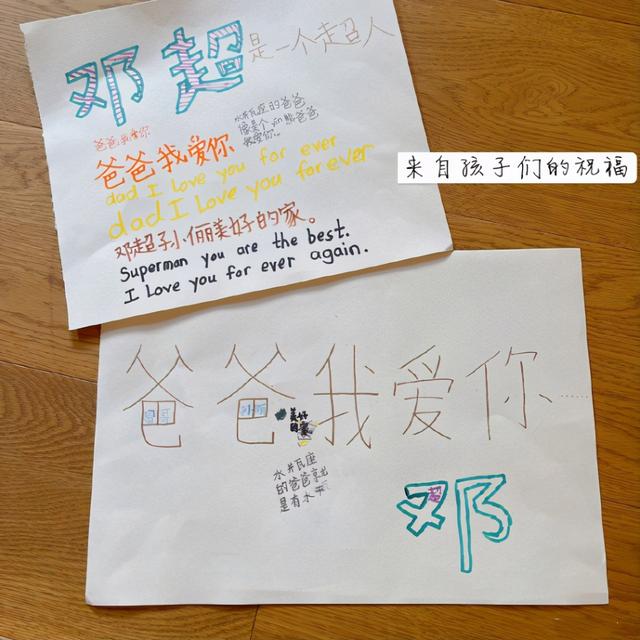 邓超是一个超人
爸爸,我爱你
水井瓦座的爸爸
像是个yin熊爸爸
我爱你..
爸爸我爱你
dad I love you for ever
dad I love you for ever
邓超孑小俪美好的家。
Superman you are the best.
I love you for ever again.
来自孩子们的祝福
爸爸我爱你……
美好
的家
水井瓦座
的爸爸就
是有水平
邓
超